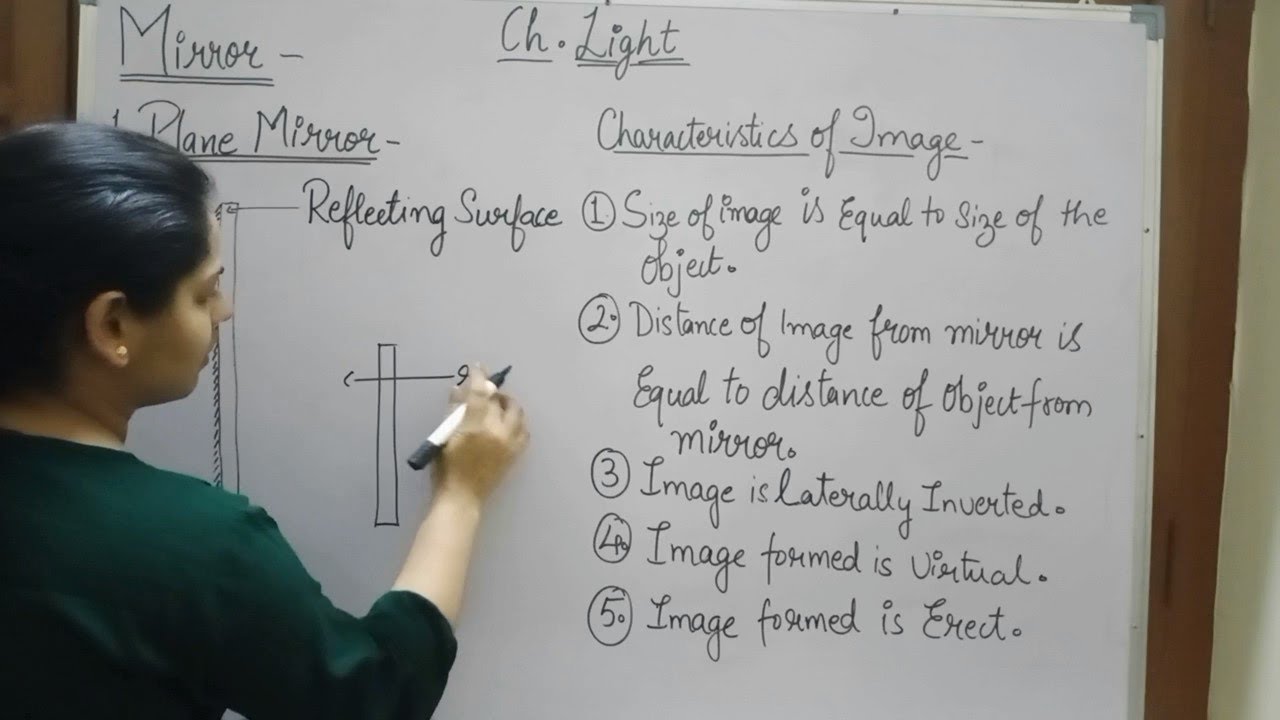 Mirror -
Ch. Light
1. Plane Mirror -
Reflecting Surface
Characteristics of Image -
① Size of image is Equal to size of the
object.
② Distance of Image from mirror is
Equal to distance of object from
mirror.
③ Image is laterally Inverted.
④ Image formed is virtual.
⑤ Image formed is Erect.